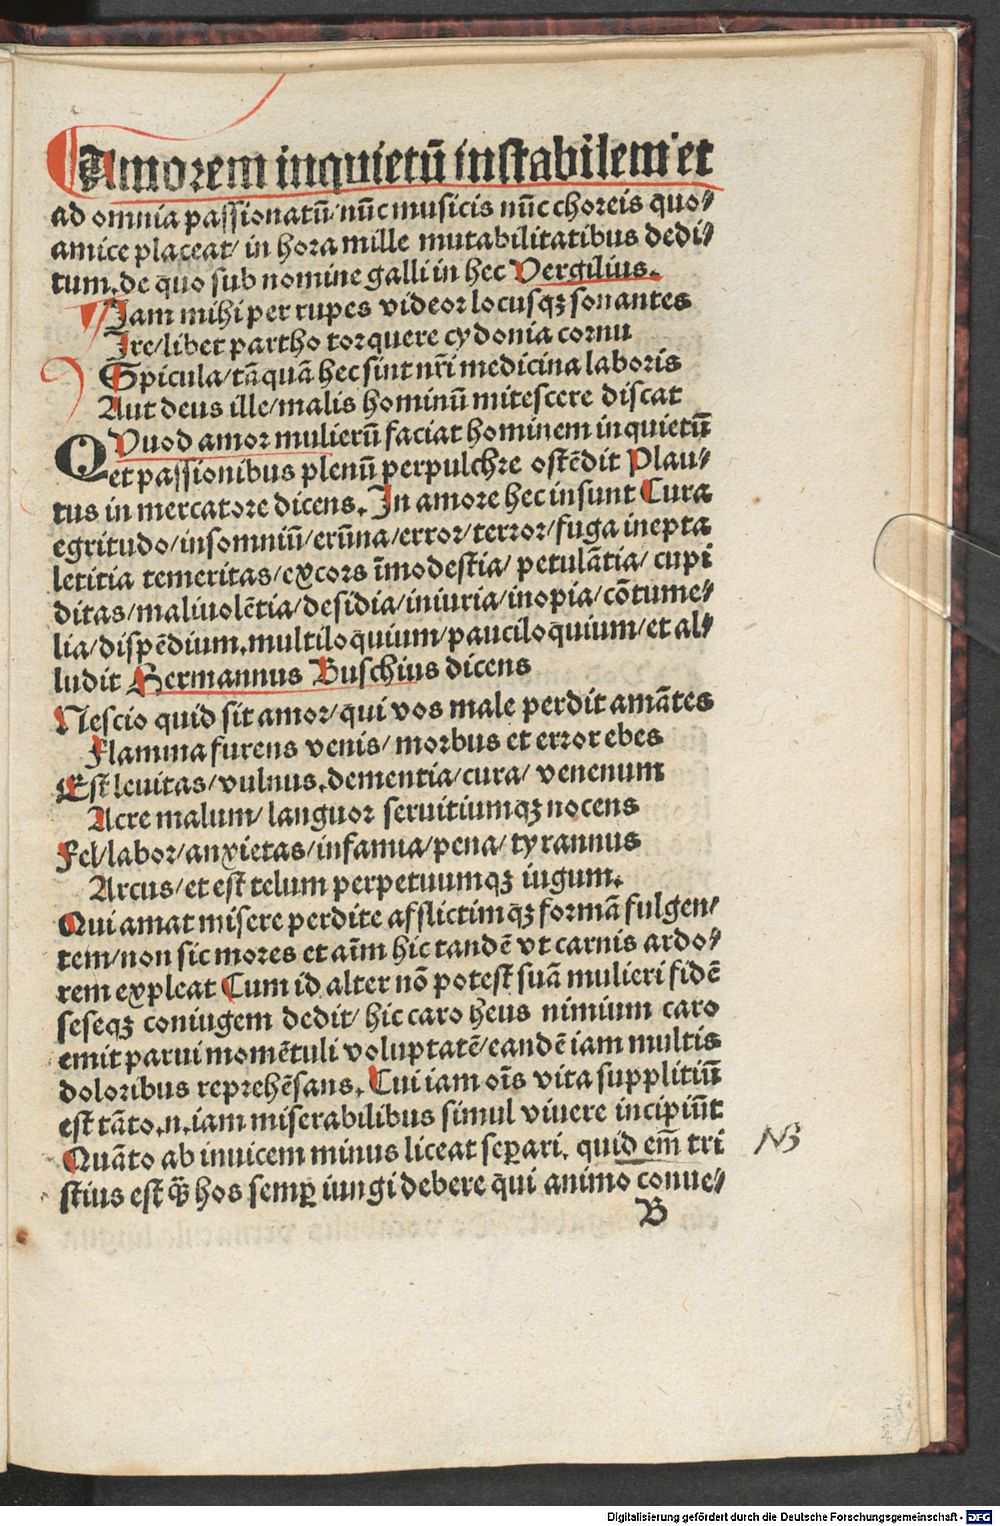 Amorem inquietū instabilem et
ad omnia passionatū/nūc musicis nūc choreis quo⸗
amice placeat/ in hora mille mutabilitatibus dedi⸗
tum. de quo sub nomine galli in hec Vergilius.
Jam mihi per rupes videor locusqꝫ sonantes
Ire/libet partho torquere cydonia cornu
Spicula/tāquā hec sint nr̄i medicina laboris
Aut deus ille/malis hominū mitescere discat
QUuod amor mulierū faciat hominem inquietū
et passionibus plenū perpulchre ostēdit Plau⸗
tus in mercatore dicens. In amore hec insunt Cura
egritudo/insomniū/erūna/error/terror/fuga inepta
letitia temeritas/excors īmodestia/ petulātia/ cupi
ditas/maliuolētia/desidia/iniuria/inopia/cōtume⸗
lia/dispēdium.multiloquium/pauciloquium/et al⸗
ludit Hermannus Buschius dicens
Nescio quid sit amor/qui vos male perdit amātes
Flamma furens venis/morbus et error ebes
Est leuitas/vulnus.dementia/cura/ venenum
Acre malum/languor seruitiumqꝫ nocens
Fel/labor/anxietas/infamia/pena/tyrannus
Arcus/et est telum perpetuumqꝫ iugum.
Qui amat misere perdite afflictimqꝫ formā fulgen⸗
tem/non sic mores et aīm hic tandē vt carnis ardo⸗
rem expleat Cum id alter nō potest suā mulieri fidē
seseqꝫ coniugem dedit/ hic caro heus nimium caro
emit parui momētuli voluptatē/eandē iam multis
doloribus reprehēsans. Cui iam oīs vita supplitiū
est tāto.n.iam miserabilibus simul viuere incipiūt
Quāto ab inuicem minus liceat seꝑari. quid em̄ tri
stius est q̄ꝫ hos semꝑ iungi debere qui animo conue⸗
B
NB
Digitalisierung gefördert durch die Deutsche Forschungsgemeinschaft - DFG